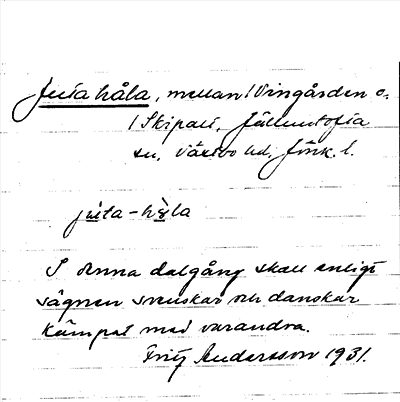 Juta håla, mellan Vingården o.
Skipali, Jälluntofta
sn, Västbo hd, Jönk. l.
juta-håla
I denna dalgång skall enligt
sägnen svenskar och danskar
kämpat med varandra.
Fritz Andersson 1931.